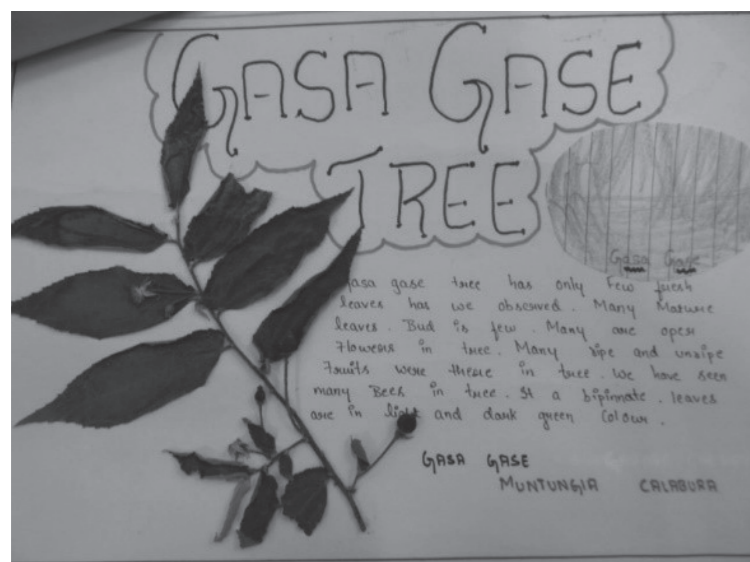 GASA GASE
TREE
Gasa Gase
Gasa gase tree has only Few fresh
leaves has we observed. Many Mature
leaves. Bud is few. Many are open
Flowers in tree. Many ripe and unripe
Fruits were these in tree. We have seen
many Bees in tree. It a bipinnate. leaves
are in light and dark green Colour.
GASA GASE
MUNTUNGIA CALABURA